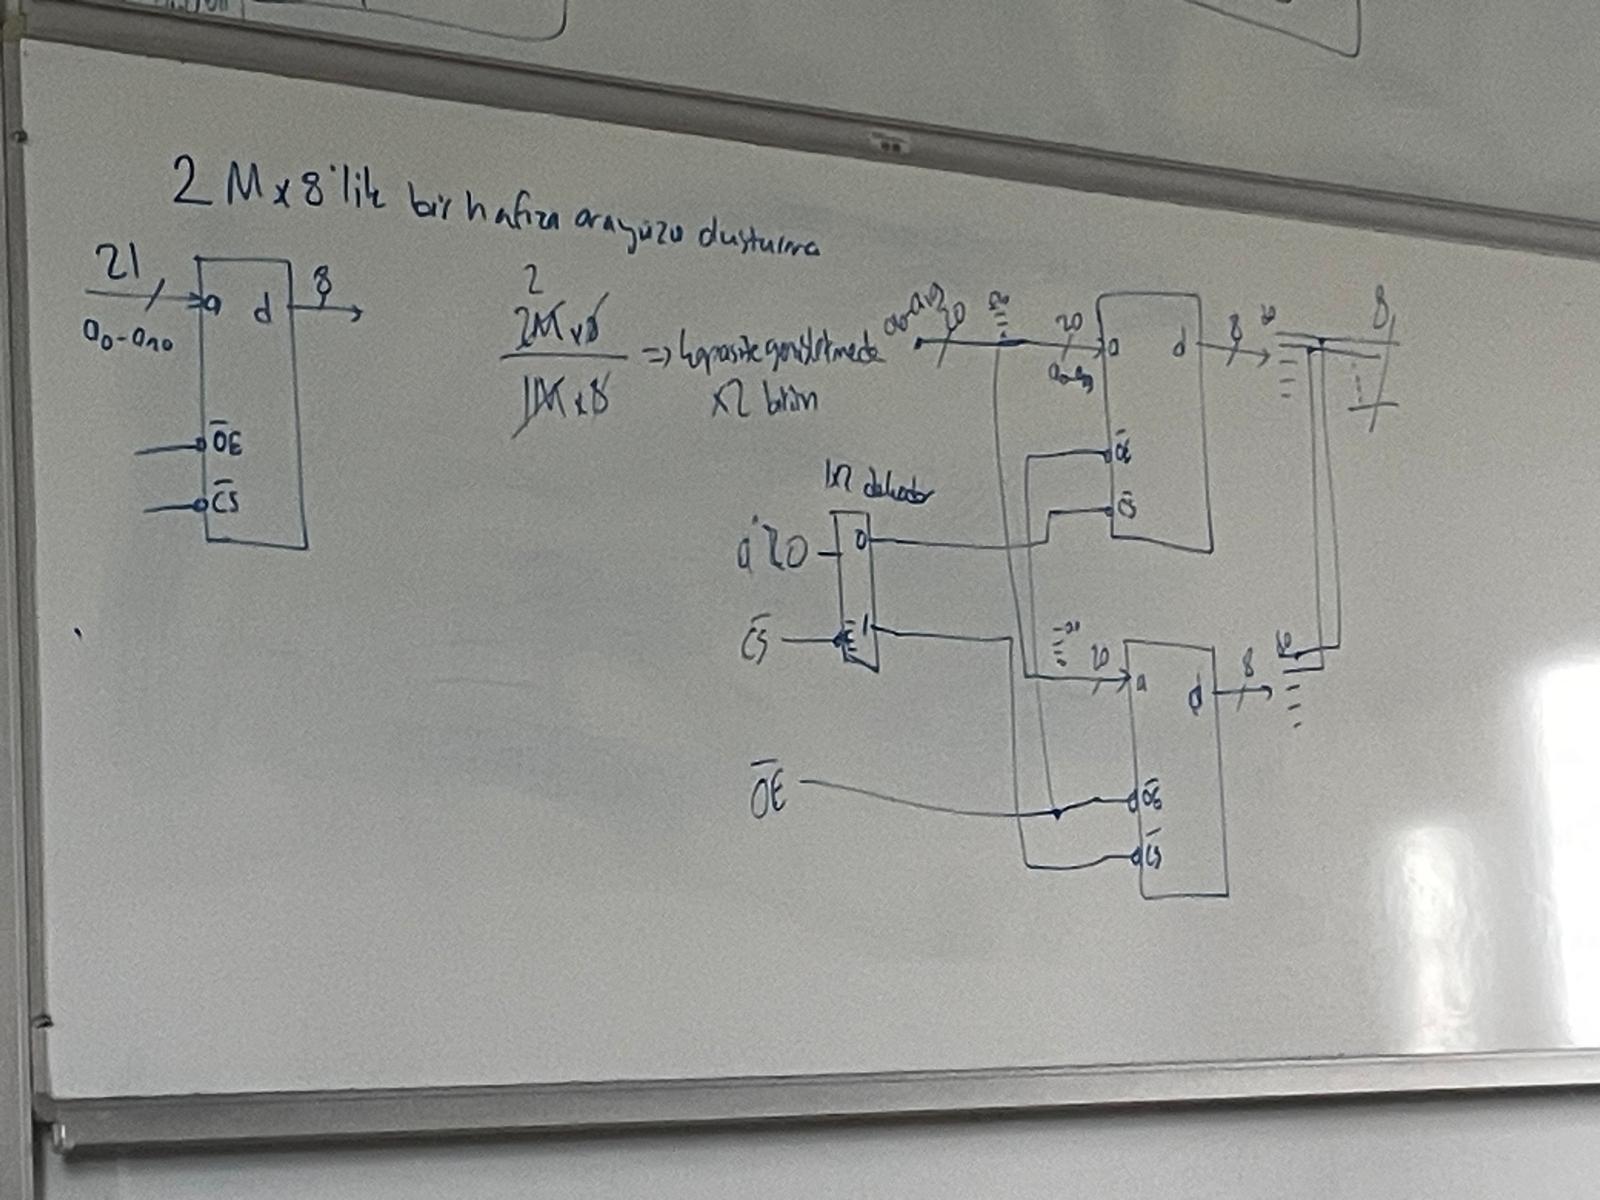 2 M x 8'lik bir hafıza arayüzü
21
a0-a20
a
d
8
OE
CS
2
2M x 8
1M x 8
=> kapasite genişletmede
x2 birim
a0-a19
20
20
a0-a19
a
d
8
8
OE
CS
1x2 dekoder
a20
0
CS
E
1
20
a
d
8
OE
OE
CS